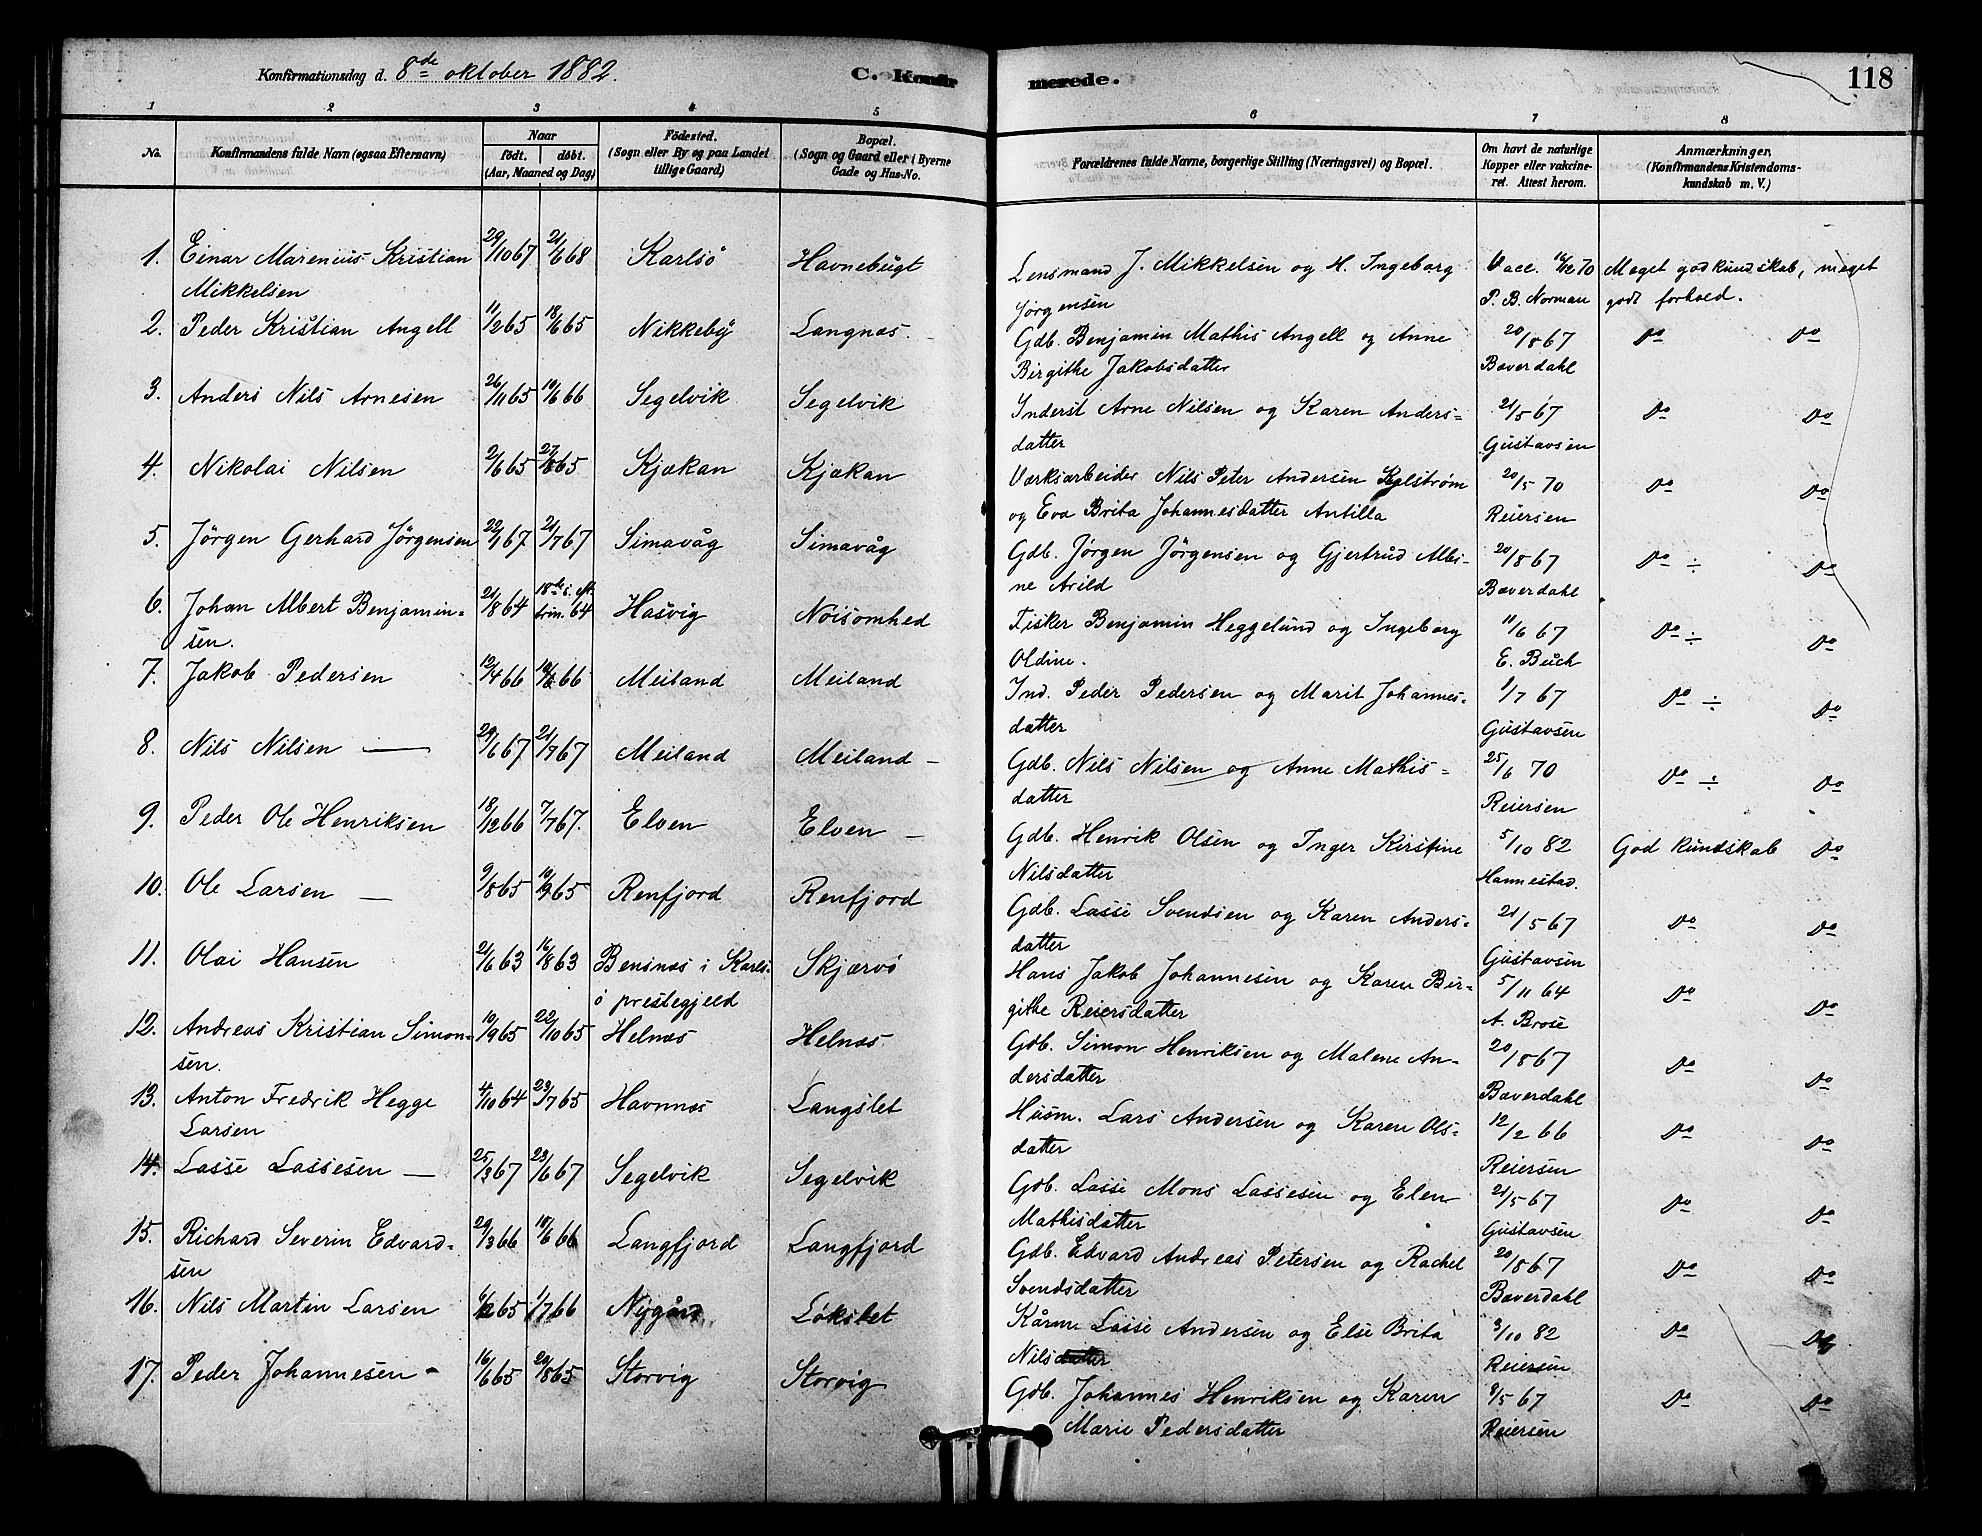 Konfirmationsdag d. 8de oktober 1882.
C. Konfirmerede.
118
1 2 3 4 5 6 7 8
No.
Konfirmandens fulde Navn (ogsaa Efternavn)
Naar
født. døbt.
(Aar, Maaned og Dag)
Fødested.
(Sogn eller By og paa Landet
tillige Gaard)
Bopæl.
(Sogn og Gaard eller i Byerne
Gade og Hus-No.
Forældrenes fulde Navne, borgerlige Stilling (Næringsvei) og Bopæl.
Om havt de naturlige
Kopper eller vakcine-
ret. Attest herom.
Anmærkninger,
(Konfirmandens Kristendoms-
kundskab m. V.)
1. Einar Marenius Kristian 29/10 67 21/6 68 Karlsö Havnebugt Lensmand J. Mikkelsen og H. Ingeborg Vacc. /12 70 Meget god kundskab, meget
Mikkelsen Jørgensen P. B. Norman godt forhold.
2. Peder Kristian Angell 11/2 65 18/6 65 Nikkeby Langnæs. Gdb. Benjamin Mathis Angell og Anne 20/8 67 Do Do
Birgithe Jakobsdatter Baverdahl
3. Anders Nils Arnesen 26/11 65 10/6 66 Segelvik Segelvik Inderst Arne Nilsen og Karen Anders= 21/5 67 Do Do
datter Gustavsen
4. Nikolai Nilsen 2/6 65 27/8 65 Kjækan Kjækan Værksarbeider Nils Peter Andersen 20/5 70 Do Do
og Eva Brita Johannesdatter Antilla Reiersen
5. Jörgen Gerhard Jörgensen 22/1 67. 21/7 67 Simavåg Simavåg Gdb. Jørgen Jörgensen og Gjertrud Albi- 20/8 67 Do ÷ Do
ne Arild Baverdahl
6. Johan Albert Benjamin= 21/8 64 18de s. eft. Hasvig Nøisomhed Fisker Benjamin Heggelund og Ingeborg 11/6 67 Do ÷ Do
sen. trin. 64 Oldine. E. Buch
7. Jakob Pedersen 12/4 66 10/6 66 Meiland Meiland Ind. Peder Pedersen og Marit Johannes- 1/7 67 Do ÷ Do
datter Gustavsen
8. Nils Nilsen — 29/6 67 21/7 67 Meiland Meiland – Gdb. Nils Nilsen og Anne Mathis= 25/6 70 Do ÷ Do
datter Reiersen
9. Peder Ole Henriksen 18/12 66 7/7 67. Elven Elven – Gdb. Henrik Olsen og Inger Kirstine 5/10 82 God kundskab Do
Nilsdatter Hannestad.
10. Ole Larsen — 9/8 65 10/9 65 Renfjord Renfjord Gdb. Lasse Svendsen og Karen Anders- 21/5 67 Do Do
datter Gustavsen
11. Olai Hansen 21/6 63 16/8 63 Bensnæs i Karls- Skjærvö Hans Jakob Johannesen og Karen Bir- 5/11 64 Do Do
ö prestegjeld githe Reiersdatter A. Brose
12. Andreas Kristian Simon= 10/9 65 22/10 65 Helnæs Helnæs Gdb. Simon Henriksen og Malene An- 20/8 67 Do Do
sen. dersdatter Baverdahl
13. Anton Fredrik Hegge 4/10 64 23/7 65 Havnnæs Langslet Husm. Lars Andersen og Karen Ols- 12/2 66 Do Do
Larsen datter Reiersen
14. Lasse Lassesen — 25/3 67 23/6 67 Segelvik Segelvik Gdb. Lasse Mons Lassesen og Elen 21/5 67 Do Do
Mathisdatter Gustavsen
15. Richard Severin Edvard= 29/3 66 10/6 66 Langfjord Langfjord Gdb. Edvard Andreas Petersen og Rachel 20/8 67 Do Do
sen Svendsdatter Baverdahl
16. Nils Martin Larsen 6/12 65 1/7 66 Nygård Løkslet Lasse Andersen og Else Brita 3/10 82 Do Do
Nilsdatter Reiersen
17. Peder Johannesen – 16/6 65 20/8 65 Storvig Storvig Gdb. Johannes Henriksen og Karen 9/5 67 Do Do
Marie Pedersdatter Reiersen